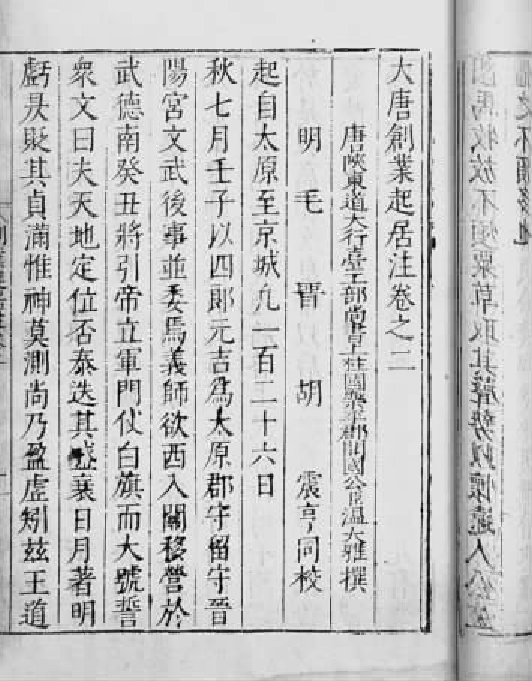 大唐創業起居注卷之二
唐陝東道大行臺工部尚書上柱國樂平郡開國公臣溫大雅撰
明毛晉胡震亨同校
起自太原至京城凡一百二十六日
秋七月壬子以四郎元吉爲太原郡守留守晉
陽宮文武後事並委焉義師欲西入關移營於
武德南癸丑將引帝立軍門仗白旗而大號誓
衆文曰夫天地定位否泰迭其盛衰日月著明
虧昃貶其貞滿惟神莫測尚乃盈虛矧茲王道